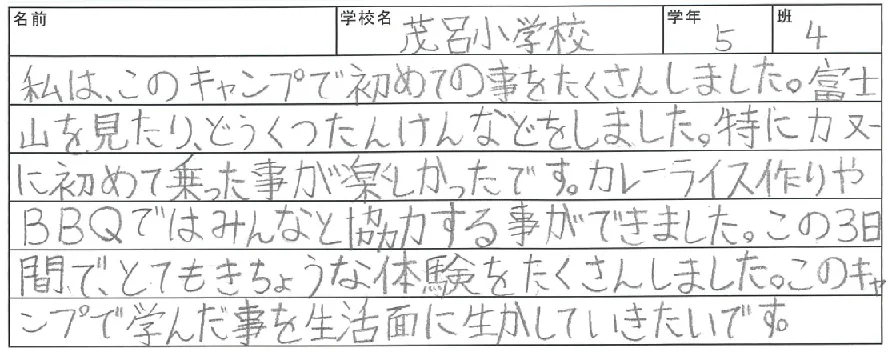 名前 学校名 茂呂小学校 学年 5 班 4
私は、このキャンプで初めての事をたくさんしました。富士
山を見たり、どうくつたんけんなどをしました。特にカヌー
に初めて乗った事が楽しかったです。カレーライス作りや
BBQではみんなと協力する事ができました。この3日
間で、とてもきちょうな体験をたくさんしました。このキャ
ンプで学んだ事を生活面に生かしていきたいです。